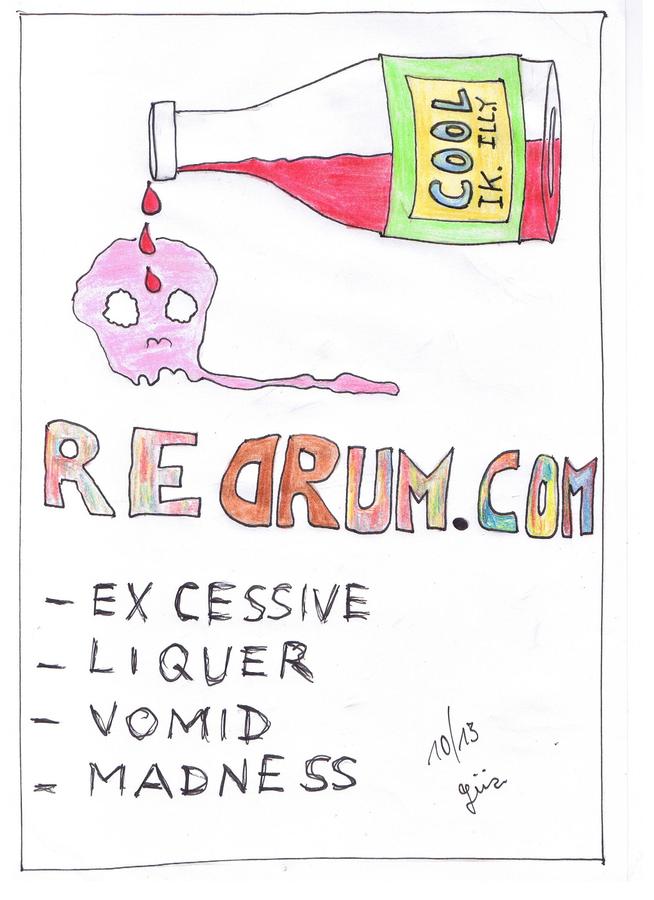 COOL
IK. ILLY
REDRUM.COM
- EX CESSIVE
- LIQUER
- VOMID
- MADNESS
10/13